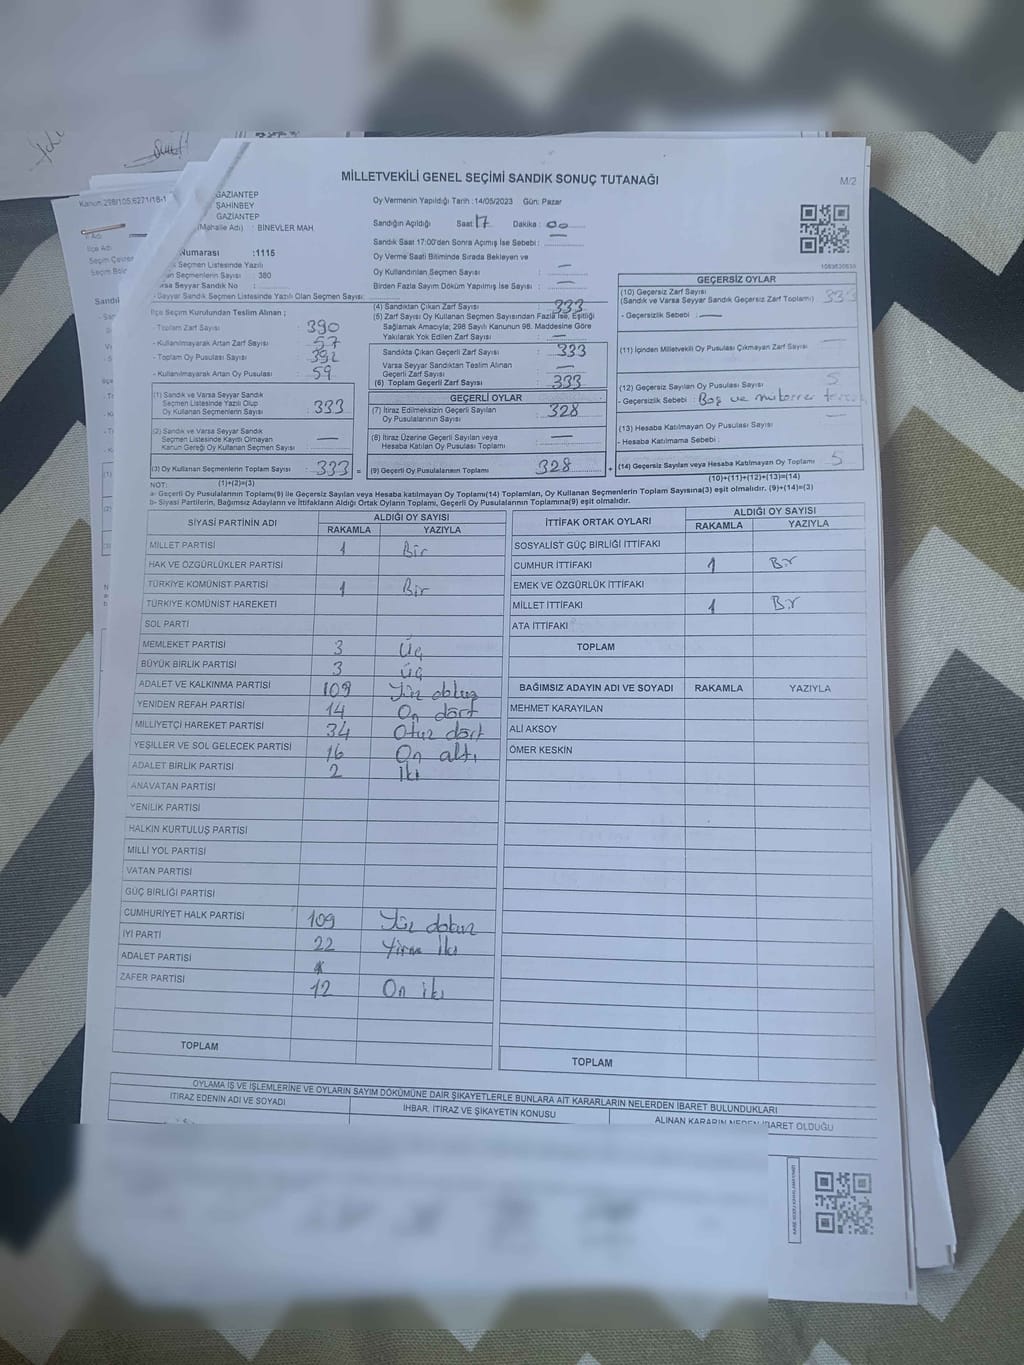 MİLLETVEKİLİ GENEL SEÇİMİ SANDIK SONUÇ TUTANAĞI
M/2
Kanun 298/105,6271/18-1
GAZİANTEP
ŞAHİNBEY
GAZİANTEP
(Mahalle Adı) : BİNEVLER MAH.
Numarası :1115
Seçmen Listesinde Yazılı
Seçmenlerin Sayısı : 380
Varsa Seyyar Sandık No :
Seyyar Sandık Seçmen Listesinde Yazılı Olan Seçmen Sayısı:
İlçe Seçim Kurulundan Teslim Alınan ;
- Toplam Zarf Sayısı : 390
- Kullanılmayarak Artan Zarf Sayısı : 57
- Toplam Oy Pusulası Sayısı : 392
- Kullanılmayarak Artan Oy Pusulası : 59
(1) Sandık ve Varsa Seyyar Sandık
Seçmen Listesinde Yazılı Olup
Oy Kullanan Seçmenlerin Sayısı : 333
(2) Sandık ve Varsa Seyyar Sandık
Seçmen Listesinde Kayıtlı Olmayan
Kanun Gereği Oy Kullanan Seçmen Sayısı : —
(3) Oy Kullanan Seçmenlerin Toplam Sayısı : 333 =
Oy Vermenin Yapıldığı Tarih :14/05/2023 Gün: Pazar
Sandığın Açıldığı Saat : 17 Dakika : 00
Sandık Saat 17:00'den Sonra Açılmış İse Sebebi : —
Oy Verme Saati Bitiminde Sırada Bekleyen ve
Oy Kullandırılan Seçmen Sayısı : —
Birden Fazla Sayım Döküm Yapılmış İse Sayısı : —
(4) Sandıktan Çıkan Zarf Sayısı : 333
(5) Zarf Sayısı Oy Kullanan Seçmen Sayısından Fazla İse, Eşitliği
Sağlamak Amacıyla; 298 Sayılı Kanunun 98. Maddesine Göre
Yakılarak Yok Edilen Zarf Sayısı : —
Sandıkta Çıkan Geçerli Zarf Sayısı : 333
Varsa Seyyar Sandıktan Teslim Alınan
Geçerli Zarf Sayısı : —
(6) Toplam Geçerli Zarf Sayısı : 333
GEÇERLİ OYLAR
(7) İtiraz Edilmeksizin Geçerli Sayılan
Oy Pusulalarının Sayısı : 328
(8) İtiraz Üzerine Geçerli Sayılan veya
Hesaba Katılan Oy Pusulası Toplamı : —
(9) Geçerli Oy Pusulalarının Toplamı 328 +
GEÇERSİZ OYLAR
(10) Geçersiz Zarf Sayısı :
(Sandık ve Varsa Seyyar Sandık Geçersiz Zarf Toplamı) 333
- Geçersizlik Sebebi : —
(11) İçinden Milletvekili Oy Pusulası Çıkmayan Zarf Sayısı —
(12) Geçersiz Sayılan Oy Pusulası Sayısı : 5
- Geçersizlik Sebebi : Boş ve
(13) Hesaba Katılmayan Oy Pusulası Sayısı —
- Hesaba Katılmama Sebebi :
(14) Geçersiz Sayılan veya Hesaba Katılmayan Oy Toplamı : 5
(10)+(11)+(12)+(13)=(14)
NOT: (1)+(2)=(3)
a- Geçerli Oy Pusulalarının Toplamı(9) ile Geçersiz Sayılan veya Hesaba katılmayan Oy Toplamı(14) Toplamları, Oy Kullanan Seçmenlerin Toplam Sayısına(3) eşit olmalıdır. (9)+(14)=(3)
b- Siyasi Partilerin, Bağımsız Adayların ve İttifakların Aldığı Ortak Oyların Toplamı, Geçerli Oy Pusulalarının Toplamına(9) eşit olmalıdır.
SİYASİ PARTİNİN ADI ALDIĞI OY SAYISI
RAKAMLA YAZIYLA
MİLLET PARTİSİ 1 Bir
HAK VE ÖZGÜRLÜKLER PARTİSİ
TÜRKİYE KOMÜNİST PARTİSİ 1 Bir
TÜRKİYE KOMÜNİST HAREKETİ
SOL PARTİ
MEMLEKET PARTİSİ 3 Üç
BÜYÜK BİRLİK PARTİSİ 3 Üç
ADALET VE KALKINMA PARTİSİ 109 Yüz dokuz
YENİDEN REFAH PARTİSİ 14 On dört
MİLLİYETÇİ HAREKET PARTİSİ 34 Otuz dört
YEŞİLLER VE SOL GELECEK PARTİSİ 16 On altı
ADALET BİRLİK PARTİSİ 2 İki
ANAVATAN PARTİSİ
YENİLİK PARTİSİ
HALKIN KURTULUŞ PARTİSİ
MİLLİ YOL PARTİSİ
VATAN PARTİSİ
GÜÇ BİRLİĞİ PARTİSİ
CUMHURİYET HALK PARTİSİ 109 Yüz dokuz
İYİ PARTİ 22 Yirmi İki
ADALET PARTİSİ
ZAFER PARTİSİ 12 On iki
TOPLAM
İTTİFAK ORTAK OYLARI ALDIĞI OY SAYISI
RAKAMLA YAZIYLA
SOSYALİST GÜÇ BİRLİĞİ İTTİFAKI
CUMHUR İTTİFAKI 1 Bir
EMEK VE ÖZGÜRLÜK İTTİFAKI
MİLLET İTTİFAKI 1 Bir
ATA İTTİFAKI
TOPLAM
BAĞIMSIZ ADAYIN ADI VE SOYADI RAKAMLA YAZIYLA
MEHMET KARAYILAN
ALİ AKSOY
ÖMER KESKİN
TOPLAM
OYLAMA İŞ VE İŞLEMLERİNE VE OYLARIN SAYIM DÖKÜMÜNE DAİR ŞİKAYETLERLE BUNLARA AİT KARARLARIN NELERDEN İBARET BULUNDUKLARI
İTİRAZ EDENİN ADI VE SOYADI İHBAR, İTİRAZ VE ŞİKAYETİN KONUSU ALINAN KARARIN NEDEN İBARET OLDUĞU